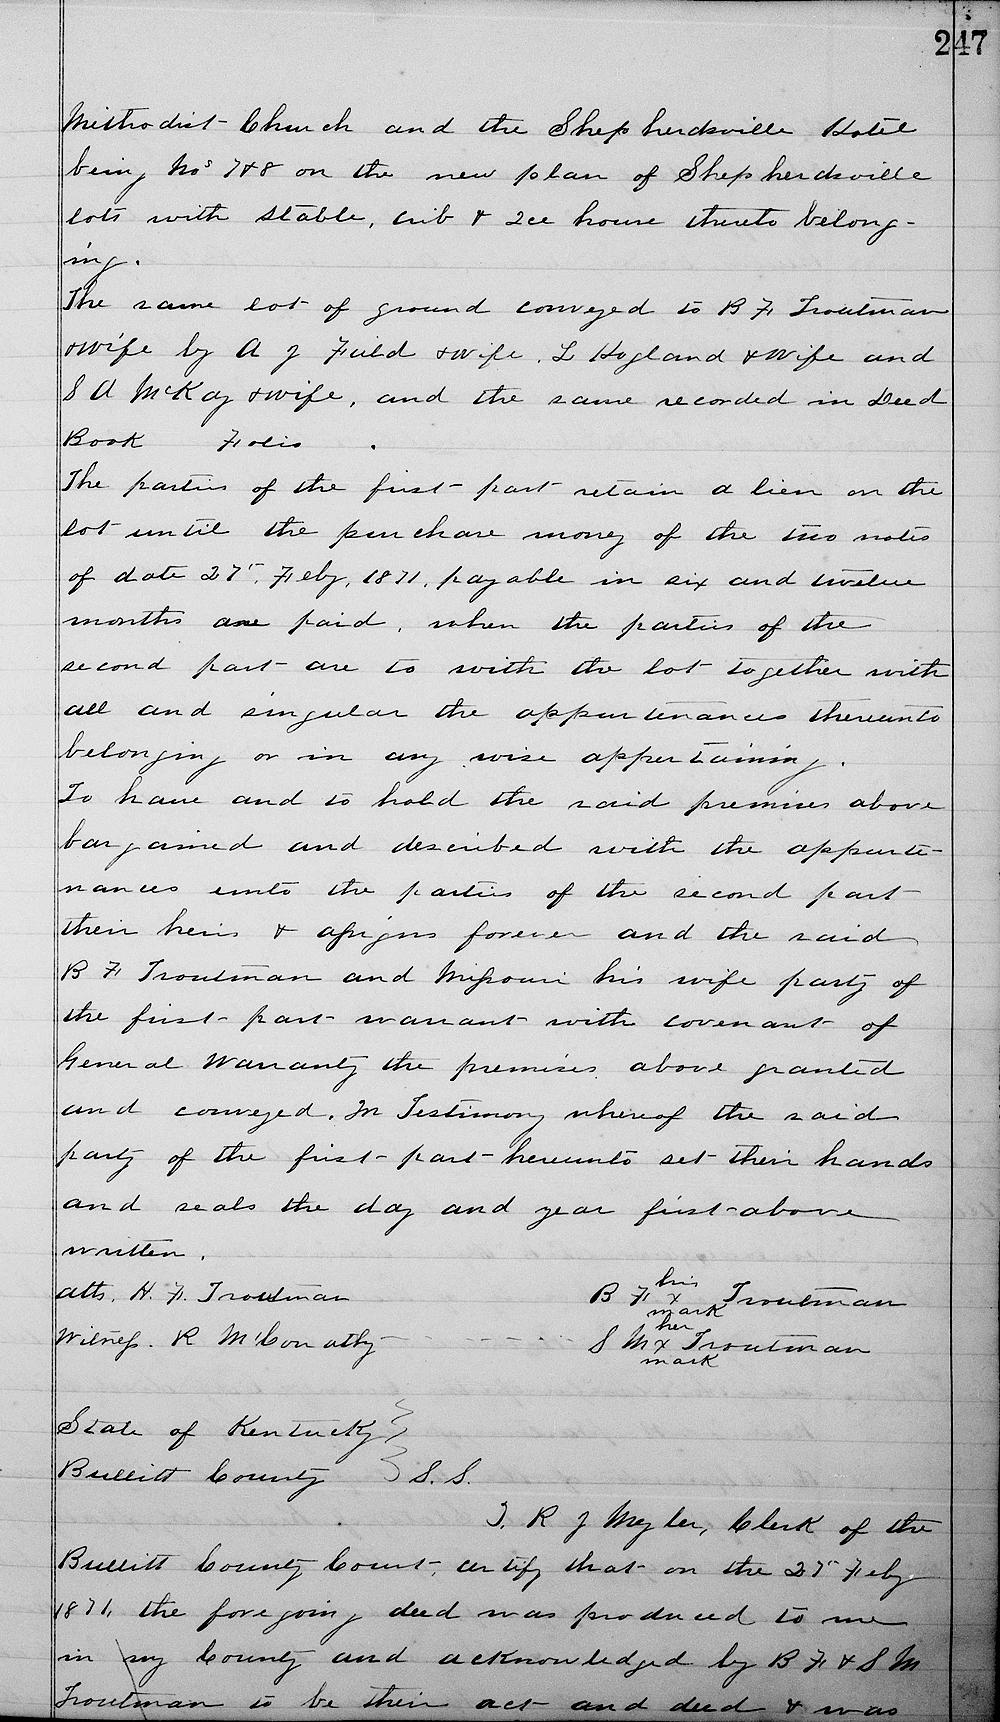 247
Methodist Church and the Shepherdsville Hotel
being Nos 7&8 on the new plan of Shepherdsville
lots with stable, crib & Ice house thereto belong-
ing.
The same lot of ground conveyed to B F Troutman
&wife by A J Field &wife, L Hogland &wife and
S A McKay &wife, and the same recorded in Deed
Book Folio .
The parties of the first part retain a lien on the
lot until the purchase money of the two notes
of date 27", Feby, 1871, payable in six and twelve
months are paid, when the parties of the
second part are to with the lot together with
all and singular the appurtenances thereunto
belonging or in any wise appertaining.
To have and to hold the said premises above
bargained and described with the appurte-
nances unto the parties of the second part
their heirs & assigns forever and the said
B F Troutman and Missouri his wife party of
the first part warrant with covenant of
General Warranty the premises above granted
and conveyed. In Testimony whereof the said
party of the first part hereunto set their hands
and seals the day and year first above
written.
atts. H. F. Troutman B F his x mark Troutman
Witness. R McConathy S M her x mark Troutman
State of Kentucky }
Bullitt County } S. S.
I. R J Meyler, Clerk of the
Bullitt County Court, certify that on the 27" Feby
1871, the foregoing deed was produced to me
in my County and acknowledged by B F & S M
Troutman to be their act and deed & was